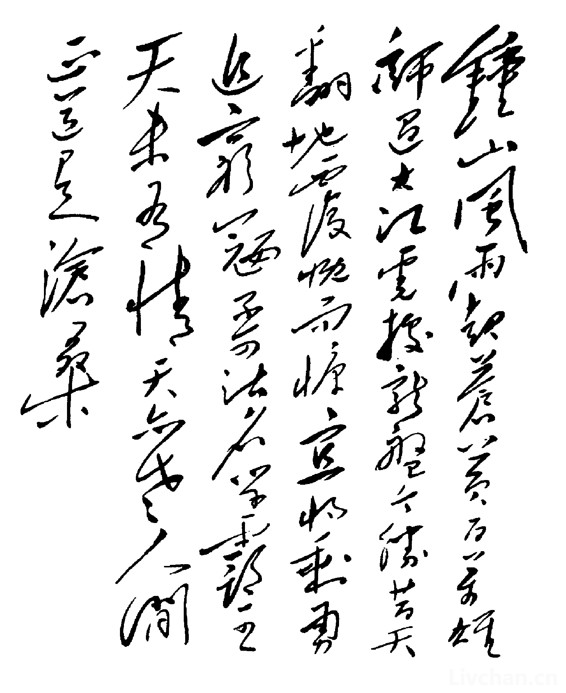 鍾山風雨起蒼黃百萬雄
師過大江虎據龍盤今勝昔天
翻地覆慨而慷宜將剩勇
追窮寇不可沽名學霸王
天未有情天亦老人間
正道是滄桑
Livchan.cn